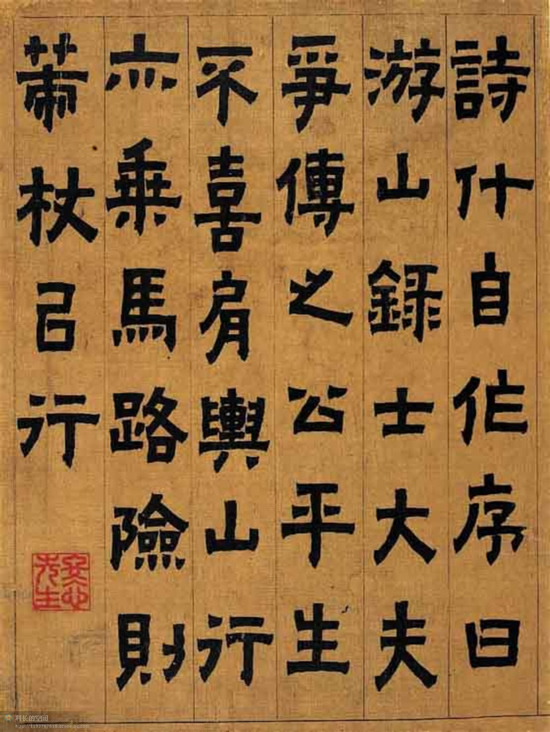 詩什自作序曰
游山錄士大夫
爭傳之公平生
不喜肩輿山行
亦乘馬路險則
䇿杖㠯行